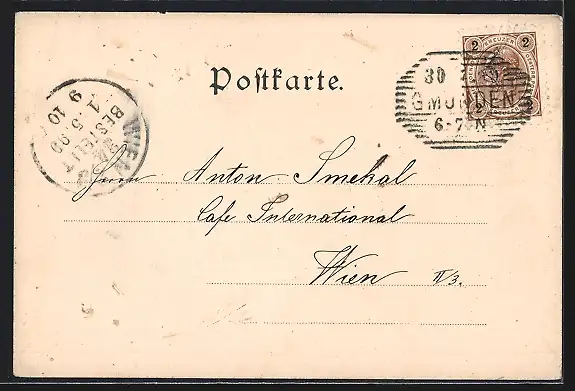 Postkarte.
2 KREUZER 2
2 2
30
GMUNDEN
6-7 N
WIEN
BESTELLT
1 5 99
9 10
Herrn Anton Smekal
Cafe International
Wien II/3.